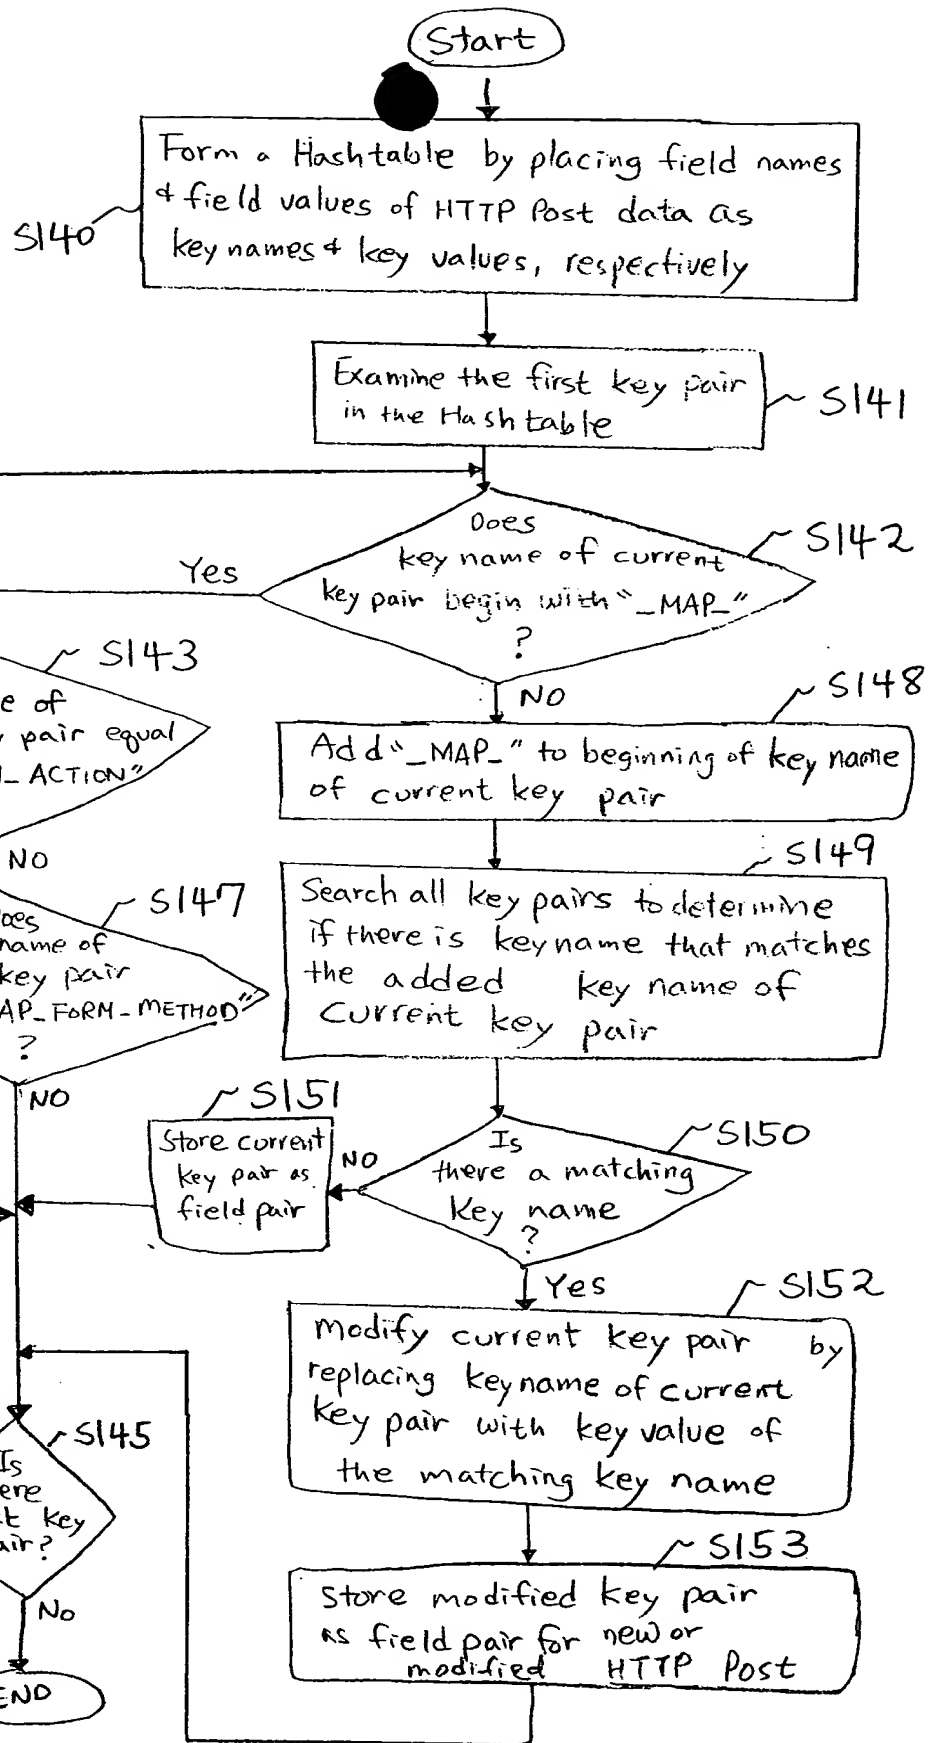 Start
Form a Hashtable by placing field names
& field values of HTTP Post data as
key names & key values, respectively
S140
Examine the first key pair
in the Hashtable
S141
Does
key name of current
key pair begin with "_MAP_"
?
S142
Yes
NO
S143
e of
pair equal
_ACTION"
NO
S148
Add "_MAP_" to beginning of key name
of current key pair
S149
Search all key pairs to determine
if there is keyname that matches
the added key name of
current key pair
S147
oes
name of
key pair
AP_FORM_METHOD"
?
NO
S151
Store current
key pair as
field pair
NO
Is
there a matching
key name
?
S150
Yes
S152
Modify current key pair by
replacing keyname of current
key pair with key value of
the matching key name
S145
Is
ere
t key
air?
No
END
S153
store modified key pair
as field pair for new or
modified HTTP Post